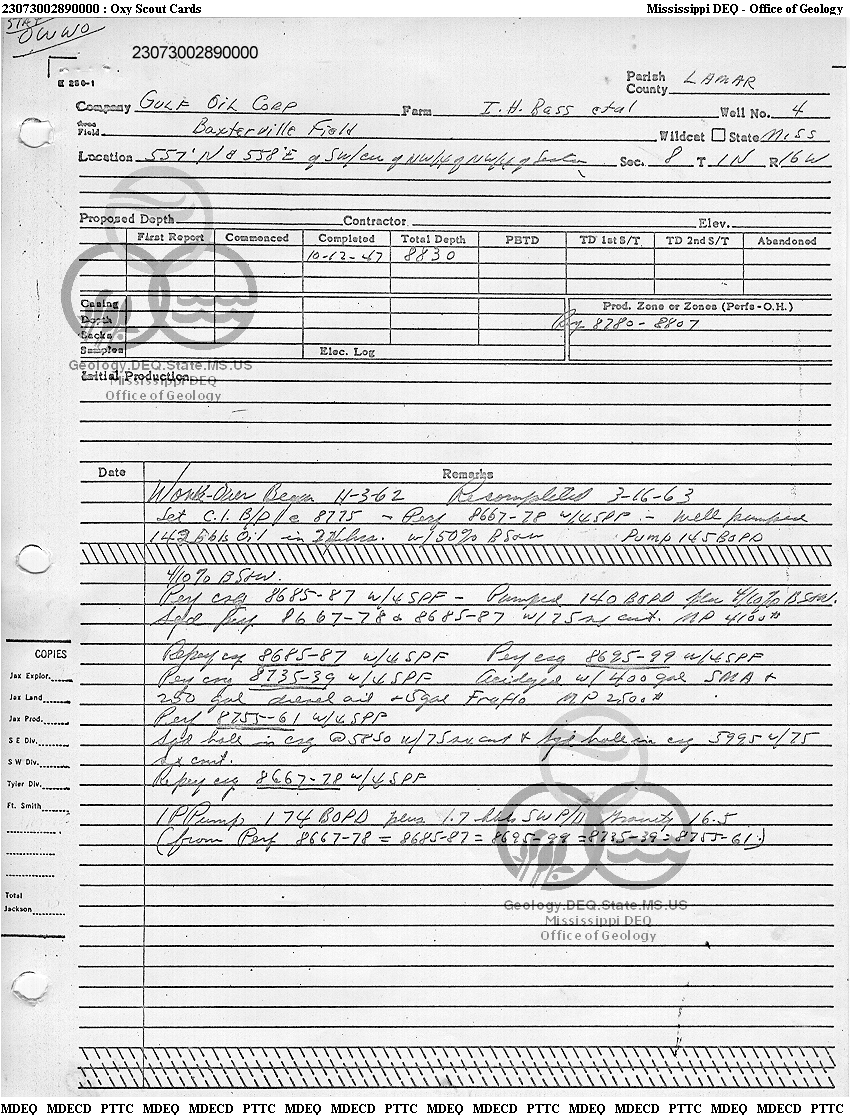 23073002890000 : Oxy Scout Cards Mississippi DEQ - Office of Geology
OWWO
23073002890000
E 250-1
Parish
County LAMAR
Company GULF OIL CORP Farm I.H. Bass etal Well No. 4
Area
Field Baxterville Field Wildcat State MISS
Location 557' N & 558' E of SW/cor of NW/4 of NW/4 of Section Sec. 8 T 1N R 16W
Proposed Depth Contractor Elev.
First Report Commenced Completed Total Depth PBTD TD 1st S/T TD 2nd S/T Abandoned
10-12-47 8830
Casing Prod. Zone or Zones (Perfs - O.H.)
Depth 8780 - 8807
Sacks
Samples Elec. Log
Geology.DEQ.State.MS.US
Initial Production
Mississippi DEQ
Office of Geology
Date Remarks
Work-Over Began 11-3-62 Recompleted 3-16-63
Set C.I. B/P @ 8775 - Perf 8667-78 w/4SPF - Well pumped
142 bbls Oil in 24 hrs. w/50% BS&W Pump 145 BOPD
4/10% BS&W.
Perf csg 8685-87 w/4SPF - Pumped 140 BOPD plus 4/10% BS&W.
Sqd Perf 8667-78 & 8685-87 w/75 sx cmt. MP 4100#
Reperf csg 8685-87 w/4SPF Perf csg 8695-99 w/4SPF
COPIES
Perf csg 8735-39 w/4SPF Acidized w/400 gal SMA &
Jax Explor.
250 gal diesel oil + 5 gal Fraflo MP 2500#
Jax Land
Perf 8755-61 w/4SPF
Jax Prod.
Sqd hole in csg @ 5850 w/75 sx cmt & Sqd hole in csg 5995 w/75
S E Div.
sx cmt.
S W Div.
Reperf csg 8667-78 w/4SPF
Tyler Div.
Ft. Smith
IP/Pump 174 BOPD plus 1.7 bbls SWP/D Gravity 16.5
(from Perf 8667-78 = 8685-87 = 8695-99 = 8735-39 = 8755-61.)
Total
Jackson
Geology.DEQ.State.MS.US
Mississippi DEQ
Office of Geology
MDEQ MDECD PTTC MDEQ MDECD PTTC MDEQ MDECD PTTC MDEQ MDECD PTTC MDEQ MDECD PTTC MDEQ MDECD PTTC